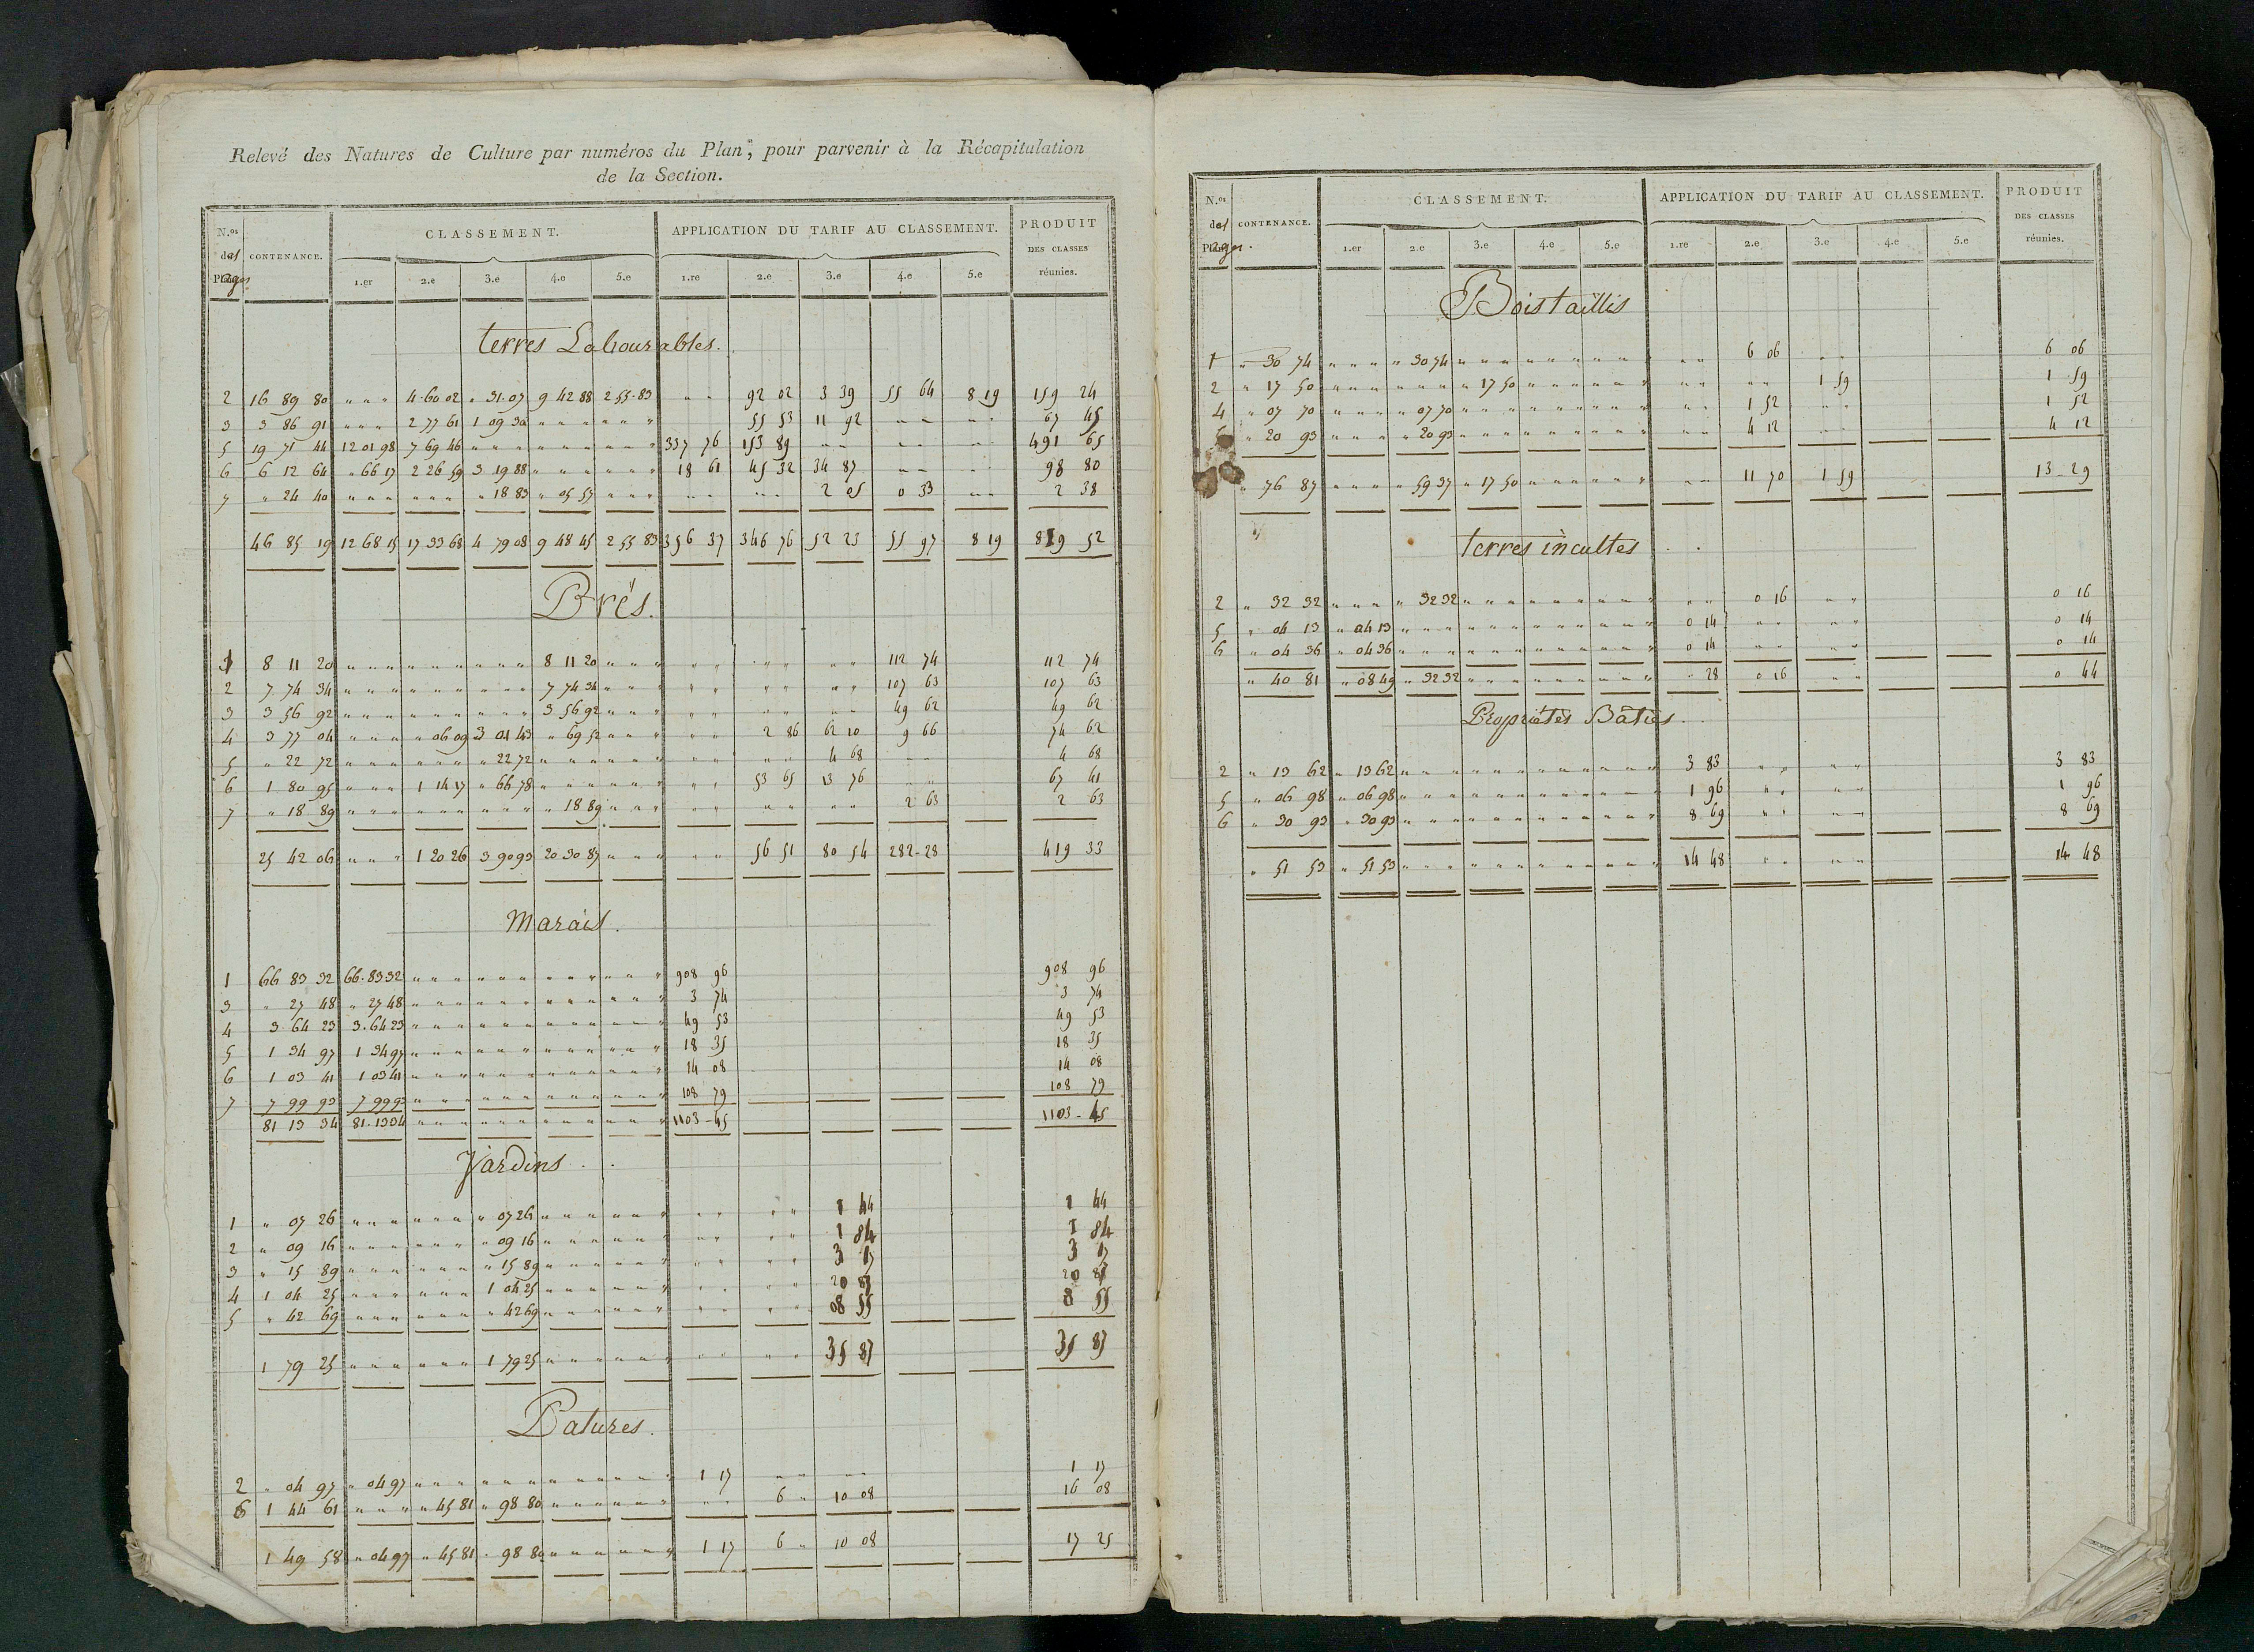 Relevé des Natures de Culture par numéros du Plan, pour parvenir à la Récapitulation
de la Section.
N.os des Pages CONTENANCE. CLASSEMENT. APPLICATION DU TARIF AU CLASSEMENT. PRODUIT DES CLASSES réunies.
1.er 2.e 3.e 4.e 5.e 1.re 2.e 3.e 4.e 5.e
terres Labourables.
2 16 89 80 " " " 4.60 02 " 31.07 9 42 88 2 55.83 " " 92 02 3 39 55 64 8 19 159 24
3 3 86 91 " " " 2 77 61 1 09 30 " " " " " " 55 53 11 92 " " " " 67 45
5 19 71 44 12 01 98 7 69 46 " " " " " " " " " 337 76 153 89 " " " " " " 491 65
6 6 12 64 " 66 17 2 26 59 3 19 88 " " " " " " 18 61 45 32 34 87 " " " " 98 80
7 " 24 40 " " " " " " " 18 83 " 05 57 " " " " " " " 2 05 0 33 " " 2 38
46 85 19 12 68 15 17 33 68 4 79 08 9 48 45 2 55 83 356 37 346 76 52 23 55 97 8 19 819 52
Prés.
1 8 11 20 " " " " " " " " " 8 11 20 " " " " " " " " " 112 74 112 74
2 7 74 34 " " " " " " " " " 7 74 34 " " " " " " " " " 107 63 107 63
3 3 56 92 " " " " " " " " " 3 56 92 " " " " " " " " " 49 62 49 62
4 3 77 04 " " " " 06 09 3 01 43 " 69 52 " " " " " 2 86 62 10 9 66 74 62
5 " 22 72 " " " " " " " 22 72 " " " " " " " " " " 4 68 " " 4 68
6 1 80 95 " " " 1 14 17 " 66 78 " " " " " " " " 53 65 13 76 " " 67 41
7 " 18 89 " " " " " " " " " " 18 89 " " " " " " " " " 2 63 2 63
25 42 06 " " " 1 20 26 3 90 93 20 30 87 " " " " " 56 51 80 54 282-28 419 33
Marais.
1 66 83 32 66.83 32 " " " " " " " " " " " " 908 96 908 96
3 " 27 48 " 27 48 " " " " " " " " " " " " 3 74 3 74
4 3 64 23 3.64 23 " " " " " " " " " " " " 49 53 49 53
5 1 34 97 1 34 97 " " " " " " " " " " " " 18 35 18 35
6 1 03 41 1 03 41 " " " " " " " " " " " " 14 08 14 08
7 7 99 93 7 99 93 " " " " " " " " " " " " 108 79 108 79
81 13 34 81.13 34 " " " " " " " " " " " " 1103-45 1103-45
Jardins
1 " 07 26 " " " " " " " 07 26 " " " " " " " " " " 1 44 1 44
2 " 09 16 " " " " " " " 09 16 " " " " " " " " " " 1 84 1 84
3 " 15 89 " " " " " " " 15 89 " " " " " " " " " " 3 17 3 17
4 1 04 25 " " " " " " 1 04 25 " " " " " " " " " " 20 87 20 87
5 " 42 69 " " " " " " " 42 69 " " " " " " " " " " 08 55 8 55
1 79 25 " " " " " " 1 79 25 " " " " " " " " " " 35 87 35 87
Patures.
2 " 04 97 " 04 97 " " " " " " " " " " " " 1 17 " " " " 1 17
6 1 44 61 " " " " 45 81 " 98 80 " " " " " " " " 6 " 10 08 16 08
1 49 58 " 04 97 " 45 81 " 98 80 " " " " " " 1 17 6 " 10 08 17 25
N.os des Pages. CONTENANCE. CLASSEMENT. APPLICATION DU TARIF AU CLASSEMENT. PRODUIT DES CLASSES réunies.
1.er 2.e 3.e 4.e 5.e 1.re 2.e 3.e 4.e 5.e
Bois taillis
1 " 30 74 " " " " 30 74 " " " " " " " " " " " 6 06 " " 6 06
2 " 17 50 " " " " " " " 17 50 " " " " " " " " " " 1 59 1 59
4 " 07 70 " " " " 07 70 " " " " " " " " " " " 1 52 " " 1 52
" 20 93 " " " " 20 93 " " " " " " " " " " " 4 12 " " 4 12
" 76 87 " " " " 59 37 " 17 50 " " " " " " " " 11 70 1 59 13-29
terres incultes
2 " 32 32 " " " " 32 32 " " " " " " " " " " " 0 16 " " 0 16
5 " 04 13 " 04 13 " " " " " " " " " " " " 0 14 " " " " 0 14
6 " 04 36 " 04 36 " " " " " " " " " " " " 0 14 " " " " 0 14
" 40 81 " 08 49 " 32 32 " " " " " " " " " " 28 0 16 " " 0 44
Propriétés Bâties
2 " 13 62 " 13 62 " " " " " " " " " " " " 3 83 " " " " 3 83
5 " 06 98 " 06 98 " " " " " " " " " " " " 1 96 " " " " 1 96
6 " 30 93 " 30 93 " " " " " " " " " " " " 8 69 " " " " 8 69
" 51 53 " 51 53 " " " " " " " " " " " " 14 48 " " " " 14 48